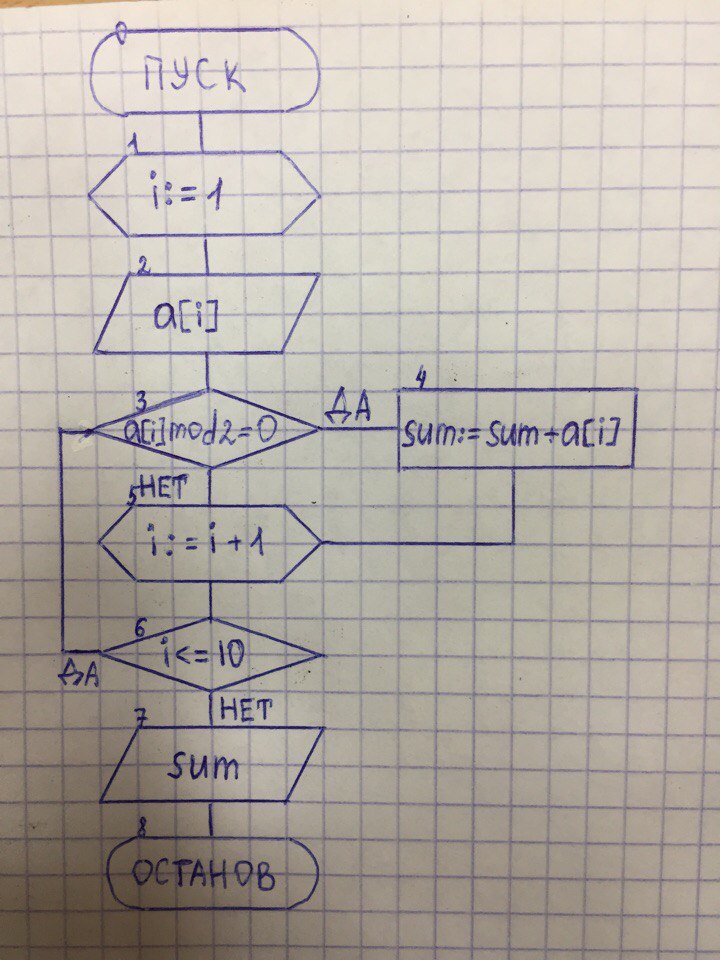 0
ПУСК
1
i:=1
2
a[i]
3
a[i]mod2=0
ДА
4
sum:=sum+a[i]
НЕТ
5
i:=i+1
6
i<=10
ДА
НЕТ
7
sum
8
ОСТАНОВ